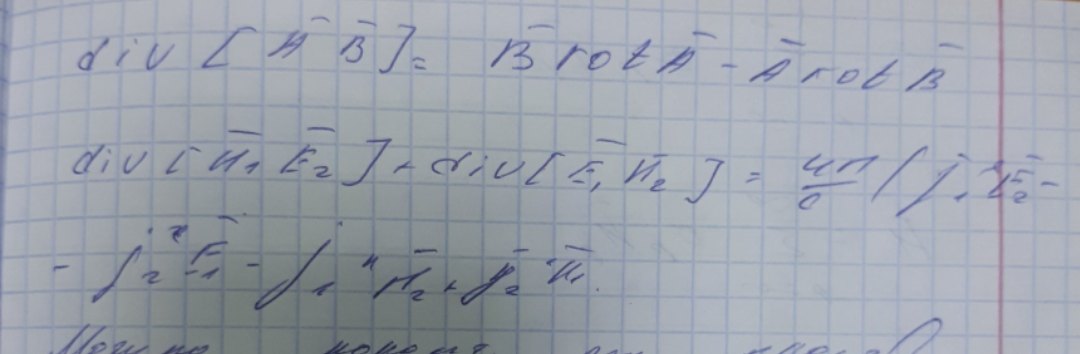 div [A̅ B̅] = B̅ rot A̅ - A̅ rot B̅
div [H̅₁ E̅₂] + div [E̅₁ H̅₂] = 4π/c (j₁ᵉ E̅₂ -
- j₂ᵉ E̅₁ - j₁ᵐ H̅₂ + j₂ᵐ H̅₁